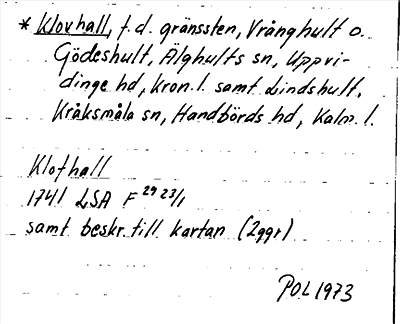 * Klovhall, f.d. gränssten, Vrånghult o.
Gödeshult, Älghults sn, Uppvi-
dinge hd, Kron. l. samt Lindshult,
Kråksmåla sn, Handbörds hd, Kalm. l.
Klofhall
1741 LSA F 29 23/1
samt beskr. till kartan (2ggr)
POL 1973